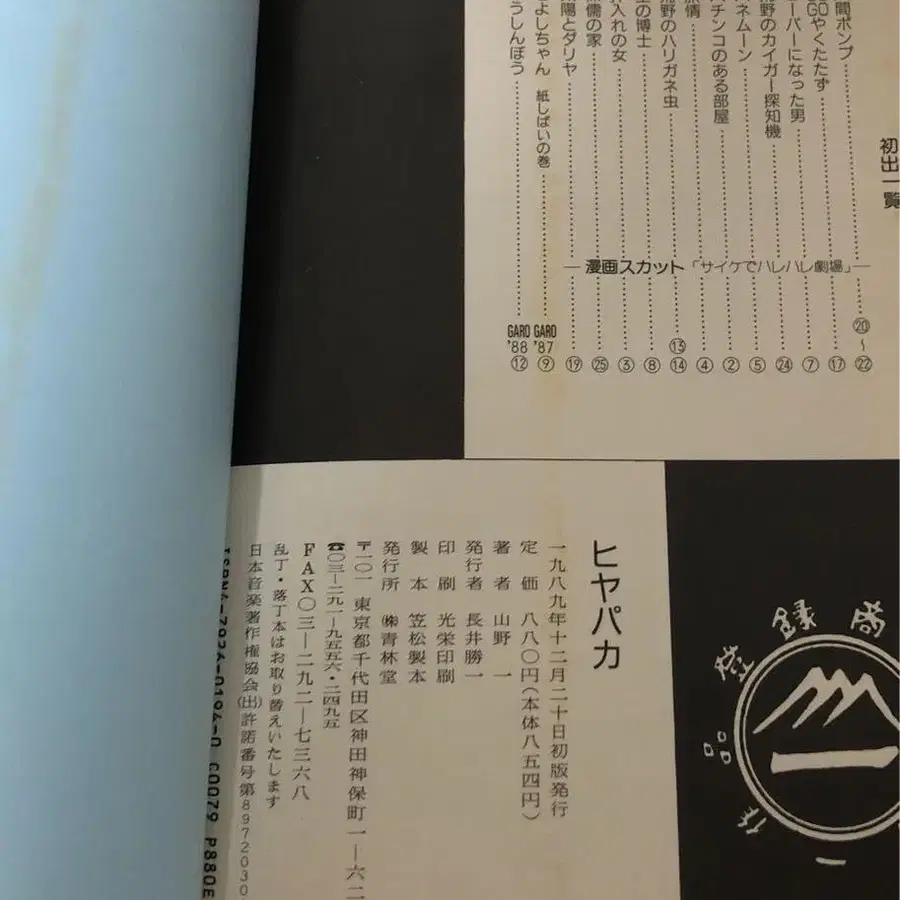 初出一覧
間ポンプ……⑳〜㉒
GOやくたたず……⑰
ーバーになった男……⑦
荒野のカイガー探知機……㉔
ネムーン……⑤
パチンコのある部屋……②
旅情……④
荒野のハリガネ虫……⑬⑭
の博士……⑧
押入れの女……③
儒の家……㉕
陽とダリヤ……⑲
よしちゃん 紙しばいの巻……GARO '87 ⑨
うしんぼう……GARO '88 ⑫
―漫画スカット「サイケでハレハレ劇場」―
ヒヤパカ
一九八九年十二月二十日初版発行
定価 八八〇円(本体八五四円)
著者 山野一
発行者 長井勝一
印刷 光栄印刷
製本 笠松製本
発行所 ㈱青林堂
〒一〇一 東京都千代田区神田神保町一―六二
☎〇三―二九一―九五五六・二四九五
FAX〇三―二九二―七三六八
乱丁・落丁本はお取り替えいたします
日本音楽著作権協会(出)許諾番号第8972030
ISBN4-7926-0194-0 C0079 P880E
登録商
一
品
作
一